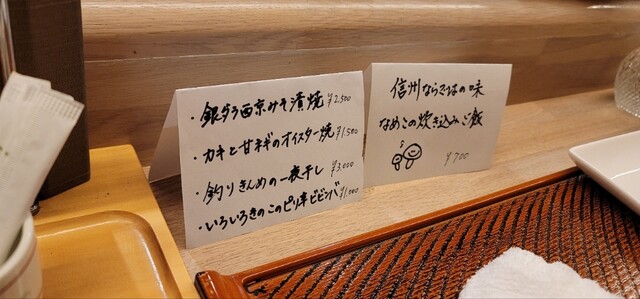 ・銀ダラ西京みそ漬焼 ¥2,500
・カキと甘ネギのオイスター焼 ¥1,500
・釣りきんめの一夜干し ¥3,000
・いろいろきのこのピリ辛ビビンバ ¥1,000
信州ならではの味
なめこの炊き込みご飯
¥700